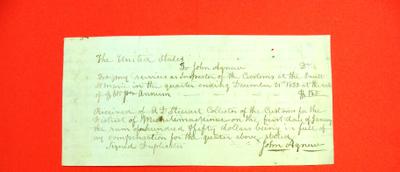 The United States
To John Agnew Dr
For my services as Inspector of the Customs at the Sault
St Marie in the quarter ending December 31st 1853 at the rate
of $ per Annum $150
Received of A D Stewart Collector of the Customs for the
District of Michilimackinac on the first day of January
the sum of hundred & fifty dollars being in full of
my compensation for the quarter above stated
Signed Duplicates John Agnew